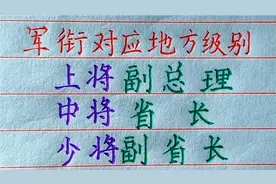 军衔对应地方级别
上将副总理
中将省长
少将副省长